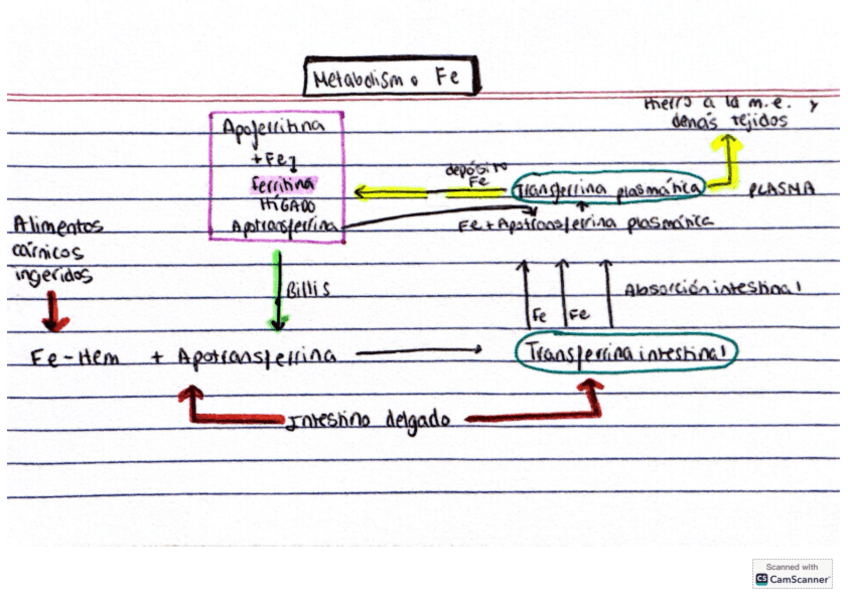 Metabolismo Fe
Hierro a la m.e. y
demás tejidos
Apoferritina
+ Fe
ferritina
HÍGADO
Apotransferrina
depósito
Fe
Transferrina plasmática
PLASMA
Fe + Apotransferrina plasmática
Alimentos
cárnicos
ingeridos
Billis
Fe Fe
Absorción intestinal
Fe-Hem + Apotransferrina
Transferrina intestinal
Intestino delgado
Scanned with
CS CamScanner